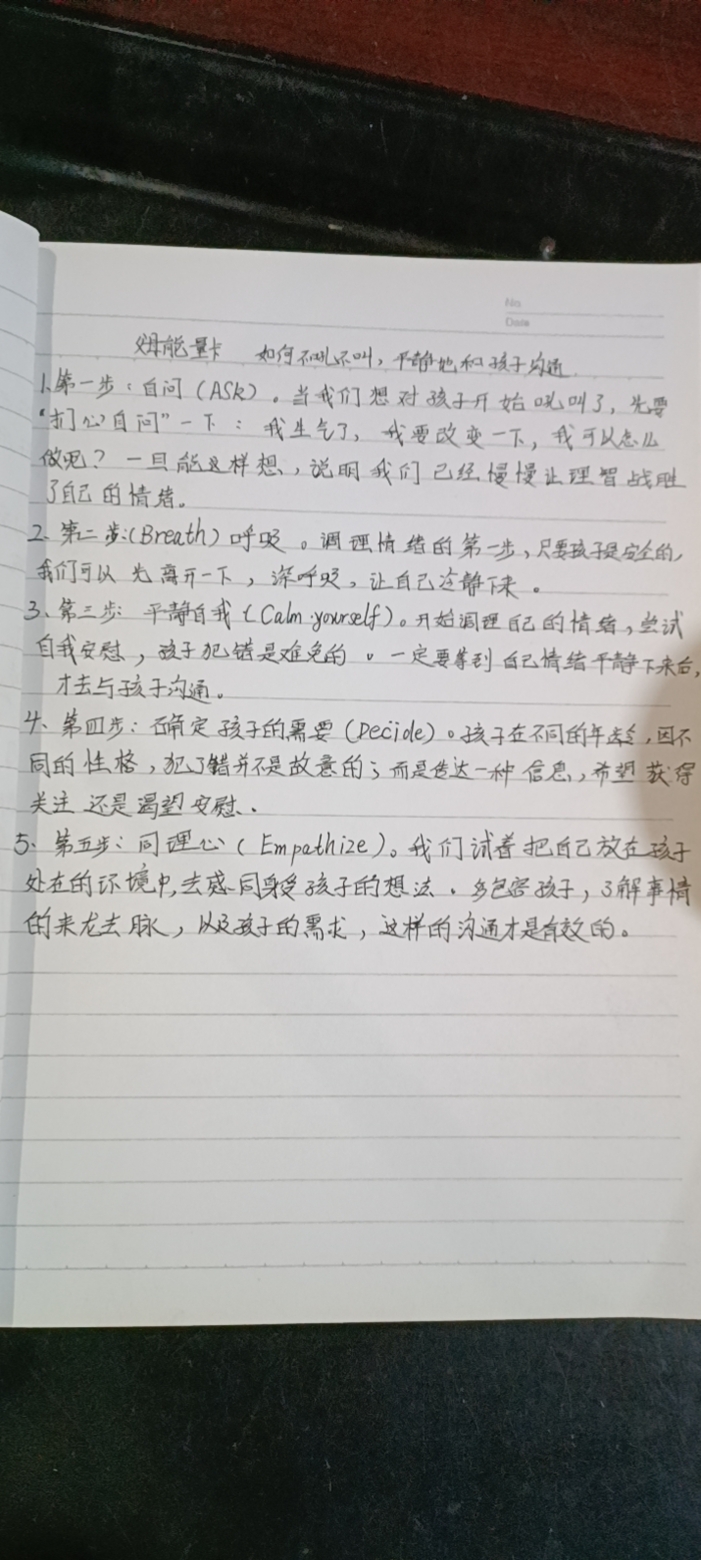 No
Date
姆能量卡 如何不吼不叫,平静地和孩子沟通
1、第一步:自问(ASk)。当我们想对孩子开始吼叫了,先要
“扪心自问”一下:我生气了,我要改变一下,我可以怎么
做呢?一旦能这样想,说明我们已经慢慢让理智战胜
了自己的情绪。
2、第二步:(Breath)呼吸。调理情绪的第一步,只要孩子是安全的,
我们可以先离开一下,深呼吸,让自己冷静下来。
3、第三步:平静自我(Calm yourself)。开始调理自己的情绪,尝试
自我安慰,孩子犯错是难免的。一定要等到自己情绪平静下来后,
才去与孩子沟通。
4、第四步:确定孩子的需要(Decide)。孩子在不同的年龄,因不
同的性格,犯了错并不是故意的;而是传达一种信息,希望获得
关注还是渴望安慰、
5、第五步:同理心(Empathize)。我们试着把自己放在孩子
处在的环境中,去感同身受孩子的想法。多包容孩子,了解事情
的来龙去脉,以及孩子的需求,这样的沟通才是有效的。